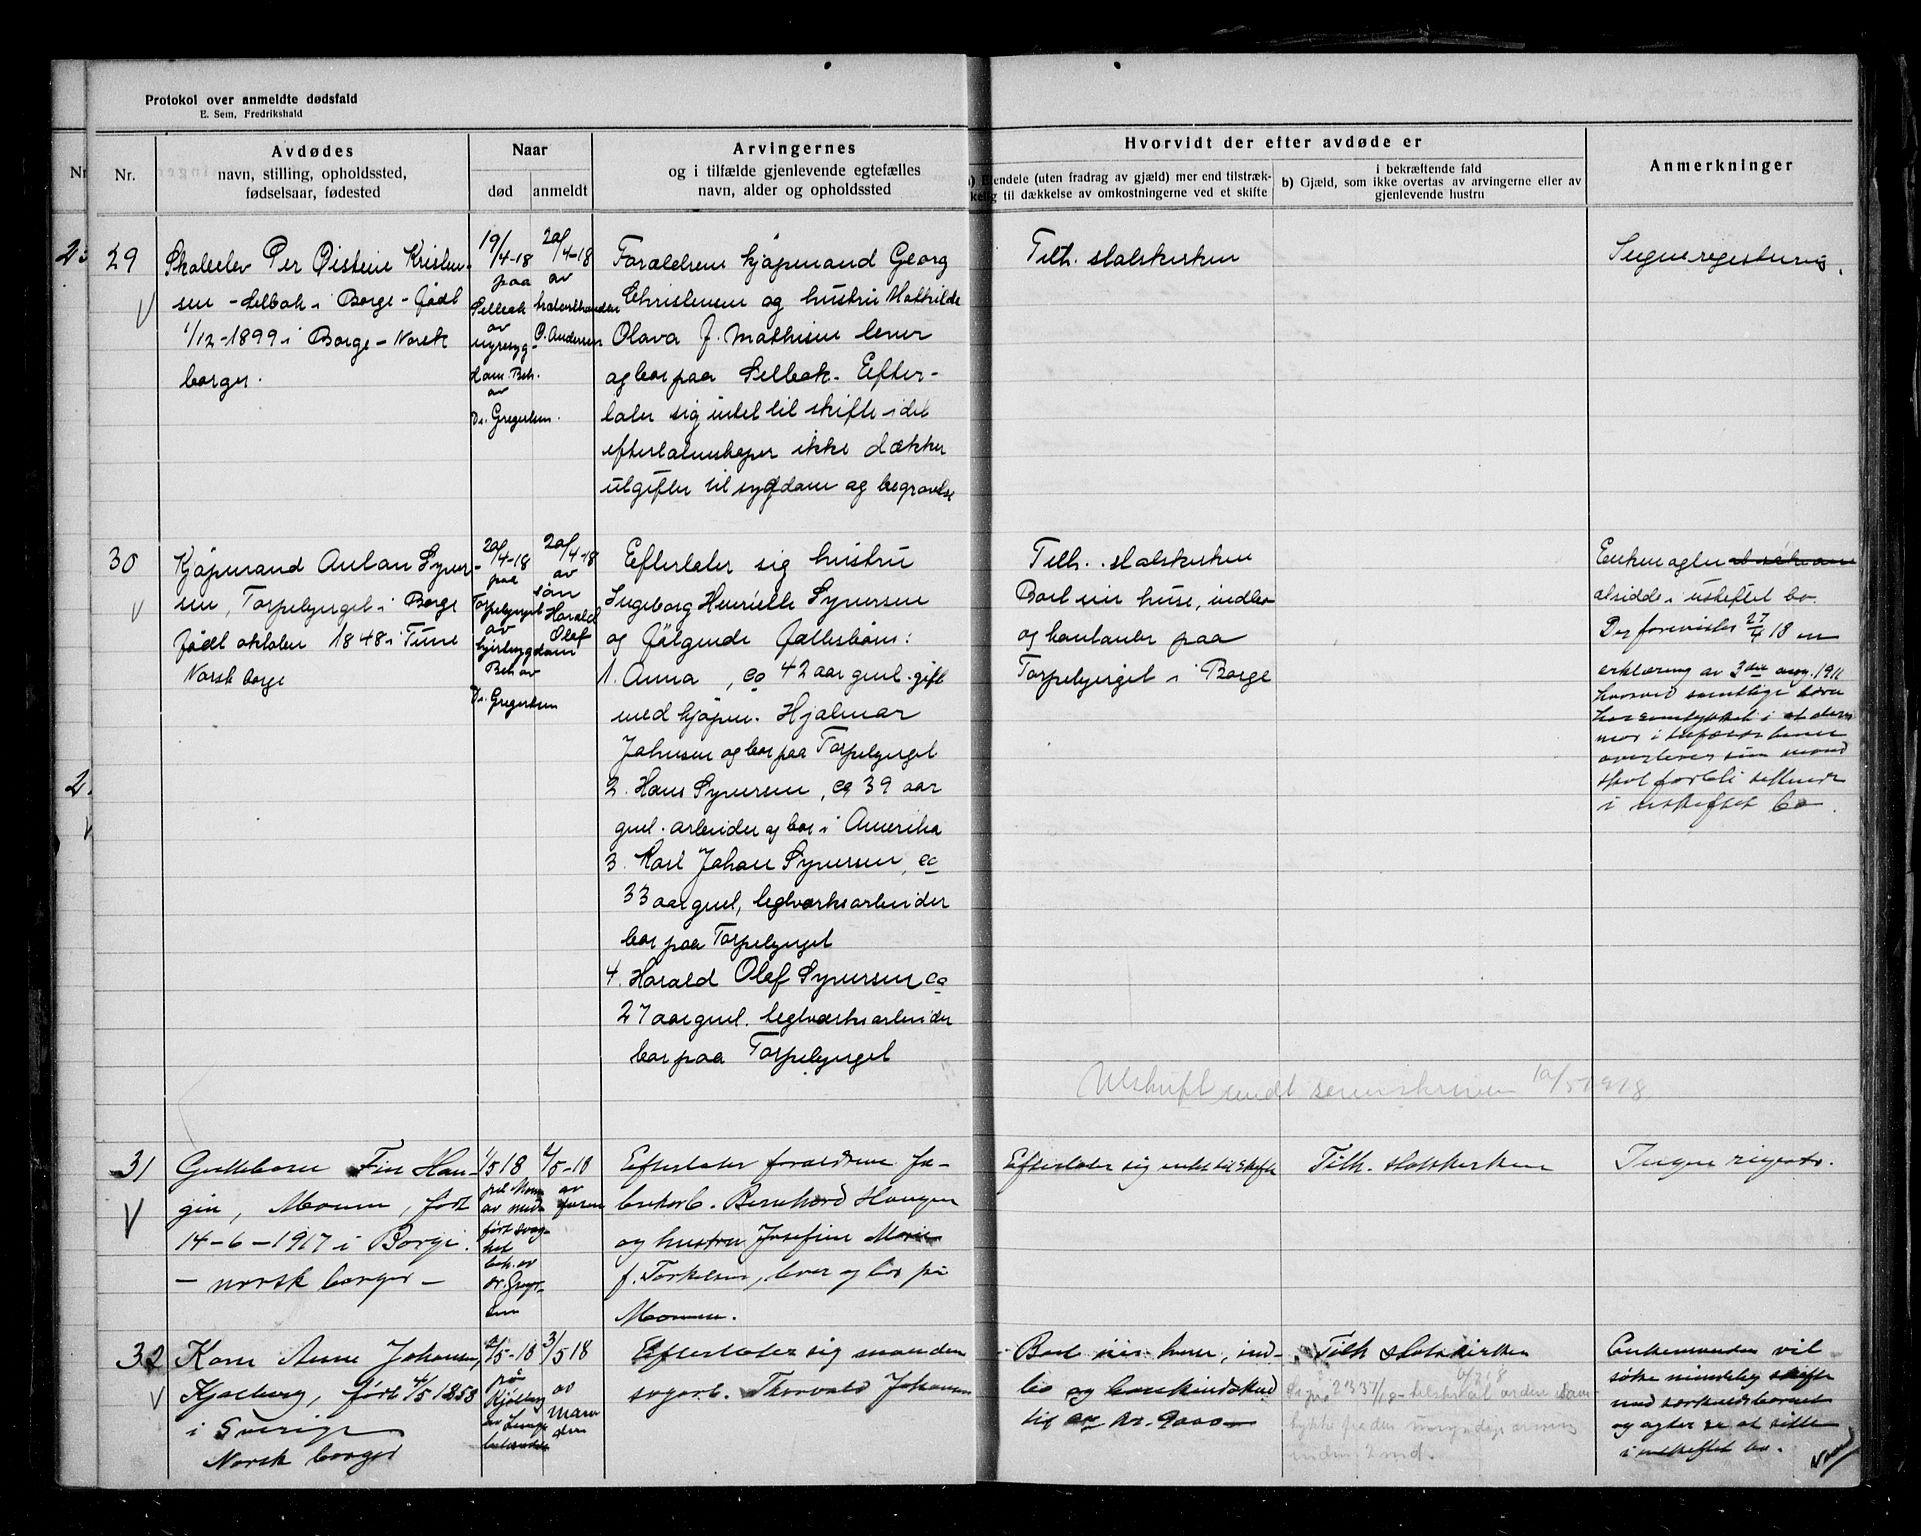 Protokol over anmeldte dødsfald
E. Sem, Fredrikshald
Nr.
Avdødes
navn, stilling, opholdssted,
fødselsaar, fødested
Naar
død
anmeldt
Arvingernes
og i tilfælde gjenlevende egtefælles
navn, alder og opholdssted
Hvorvidt der efter avdøde er
Eiendele (uten fradrag av gjæld) mer end tilstræk-
kelig til dækkelse av omkostningerne ved et skifte
i bekræftende fald
b) Gjæld, som ikke overtas av arvingerne eller av
gjenlevende hustru
Anmerkninger
29
Skoleelev Per Øistein Kristen-
sen - Selbak i Borge - født
1/12-1899 i Borge - Norsk
borger.
19/4-18
paa
Selbak
av
dom. Beh.
av
Dr. Gregersen.
20/4-18
av
O. Andersen
Forældrene kjøpmand Georg
Christensen og hustru Mathilde
Olava f. Mathisen lever
og bor paa Selbak. Efter-
later sig intet til skifte idet
efterlatenskaper ikke dækker
utgifter til sygdom og begravelse
Tilh. statskirken
Ingen registrering.
30
Kjøpmand Anton Syver-
sen, Torpebjerget i Borge
født oktober 1848 i Tune
Norsk borge
20/4-18
paa
Torpebjerget
av
hjertesygdom
Beh av
Dr. Gregersen
20/4-18
av
søn
Harald
Olaf
Efterlater sig hustru
Ingeborg Henriette Syversen
og følgende fællesbørn:
1. Anna, ca 42 aar gml. gift
med kjøpm. Hjalmar
Johnsen og bor paa Torpebjerget
2. Hans Syversen, ca 39 aar
gml. arbeider og bor i Amerika
3. Karl Johan Syversen, ca
33 aar gml, teglværksarbeider
bor paa Torpebjerget
4. Harald Olaf Syversen ca
27 aar gml. teglværksarbeider
bor paa Torpebjerget
Tilh. statskirken
Boet eier huse, indbo
og kontanter paa
Torpebjerget i Borge
Enken agter
at sidde i uskiftet bo.
Der forevistes 27/4 18 en
erklæring av 3die aug. 1911
hvorved samtlige børn
har samtykket i at deres
mor i tilfælde henne
overlever sin mand
skal forbli siddende
i uskiftet bo.
Utskrift sendt sorenskriveren 10/5 1918
31
Guttebarn Fin Hau-
gen, Moum, født
14-6-1917 i Borge.
- norsk borger -
1/5 18
paa Moum
av med-
født svag-
het
beh. av
dr. Greger-
sen
2/5-18
av
faren
Efterlater forældrene fa-
brikarb. Bernhard Haugen
og hustru Josefine Marie
f. Torkelsen, lever og bor på
Moum.
Efterlater sig intet til skifte
Tilh. statskirken
Ingen registr.
32
Karen Anne Johansen,
Kjølberg, født 4/5 1858
i Sverige
Norsk borger
2/5-18
på
Kjølberg
3/5 18
av
man-
den
Efterlater sig manden
sagarb. Thorvald Johansen
Boet eier huse, ind-
bo
kr. 9000
Tilh statskirken
inden 2 md.
Enkemanden vil
søke mindelig skifte
med særkuldsbarnet
og agter at sitte
i uskiftet bo.